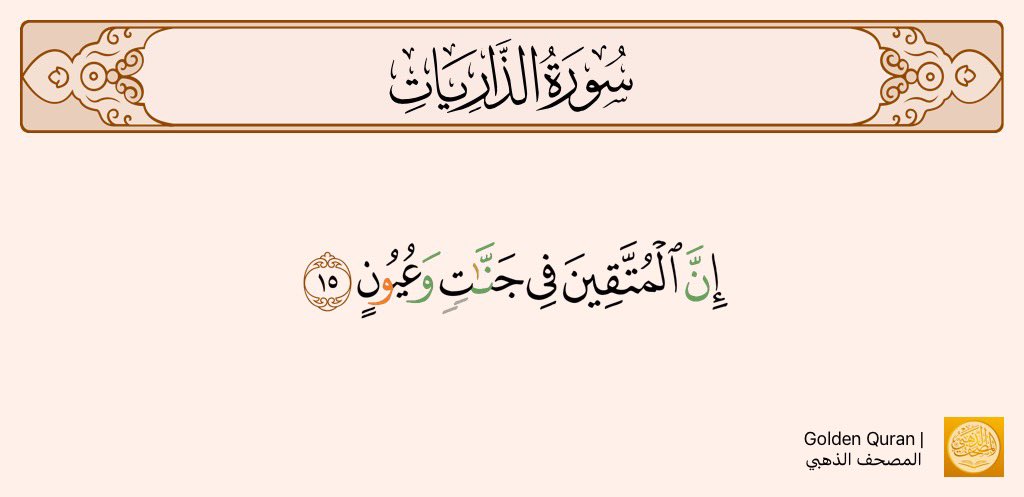 سُورَةُ الذَّارِيَاتِ
إِنَّ ٱلْمُتَّقِينَ فِى جَنَّـٰتٍ وَعُيُونٍ ١٥
Golden Quran |
المصحف الذهبي
المصحف الذهبي